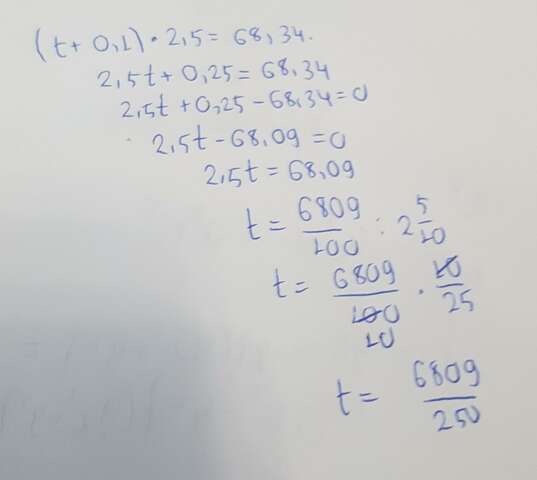 (t + 0,1) · 2,5 = 68,34.
2,5t + 0,25 = 68,34
2,5t + 0,25 - 68,34 = 0
2,5t - 68,09 = 0
2,5t = 68,09
t = 6809/100 : 2 5/10
t = 6809/100 · 10/25
10
t = 6809/250